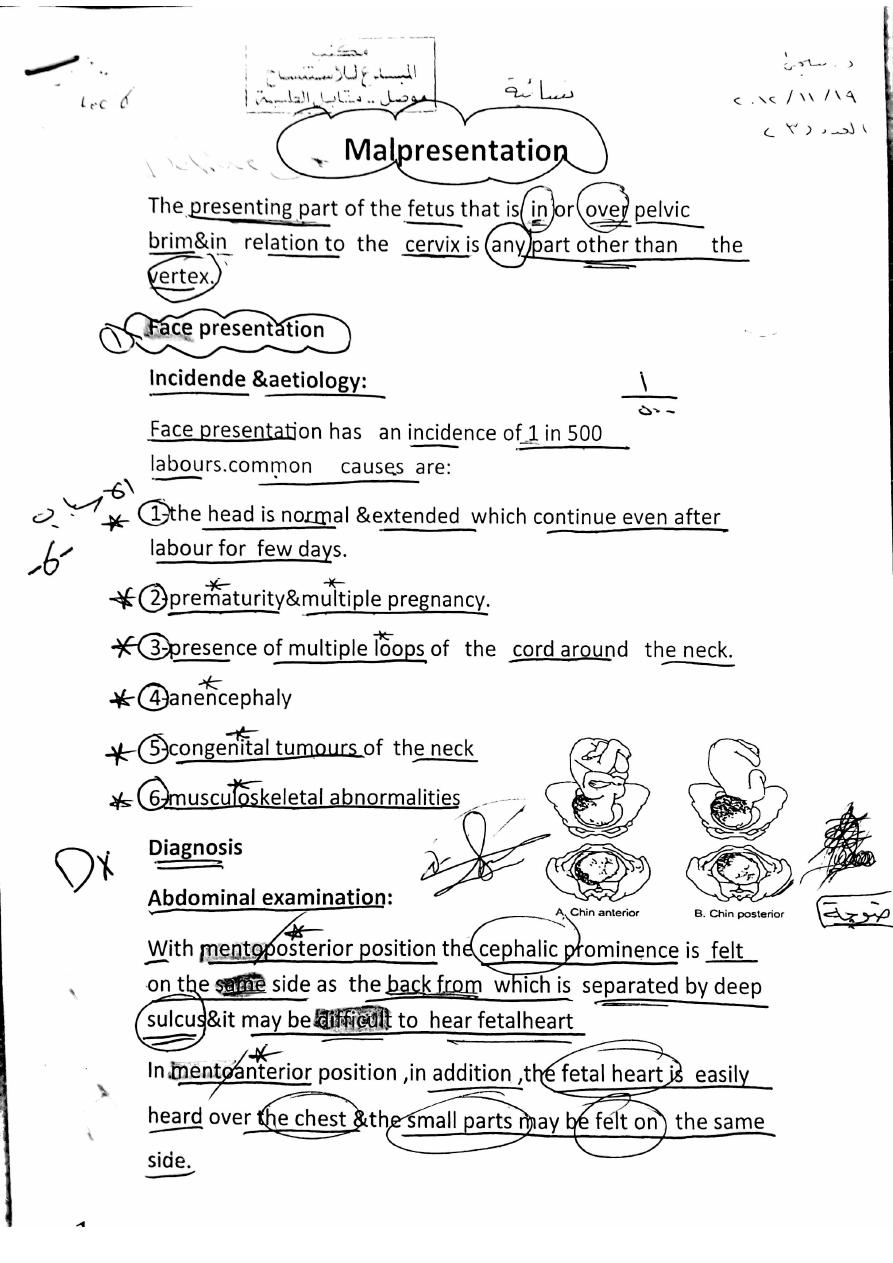 مكتب
للاستنساخ
موصل .. مقابل الطبية
نسائية
٢٠١٢/١١/١٩
Lec 6
Malpresentation
The presenting part of the fetus that is in or over pelvic
brim&in relation to the cervix is any part other than the
vertex.
1
Face presentation
Incidende &aetiology:
١
٥٠٠
Face presentation has an incidence of 1 in 500
labours.common causes are:
1-the head is normal &extended which continue even after
labour for few days.
2-prematurity&multiple pregnancy.
3-presence of multiple loops of the cord around the neck.
4-anencephaly
5-congenital tumours of the neck
6-musculoskeletal abnormalities
Dx
Diagnosis
Abdominal examination:
A. Chin anterior
B. Chin posterior
With mentoposterior position the cephalic prominence is felt
on the same side as the back from which is separated by deep
sulcus&it may be difficult to hear fetalheart
In mentoanterior position ,in addition ,the fetal heart is easily
heard over the chest &the small parts may be felt on the same
side.